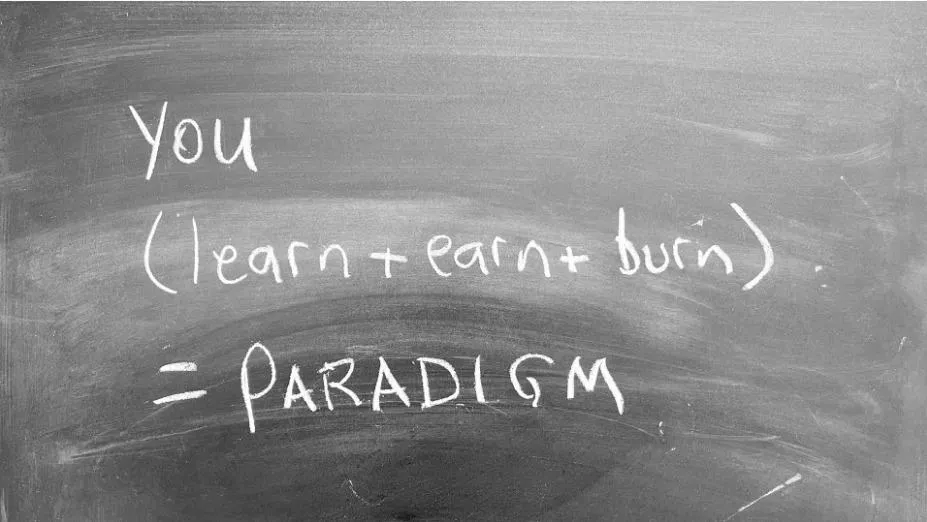 You
(learn + earn + burn)
= PARADIGM